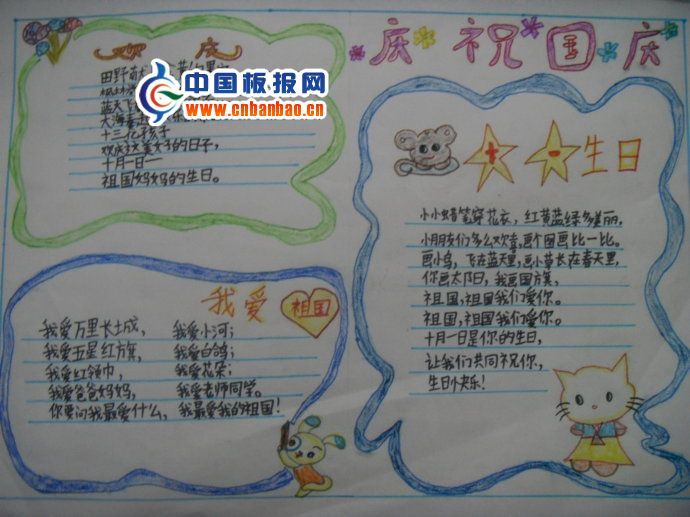 欢庆
田野
蓝天
大海
十三亿孩子
欢庆这美好的日子,
十月一日——
祖国妈妈的生日。
中国板报网
www.cnbanbao.cn
庆祝国庆
十一生日
小小蜡笔穿花衣,红黄蓝绿多美丽,
小朋友们多么欢喜,画个图画比一比。
画小鸟,飞在蓝天里,画小草长在春天里,
你画太阳,我画国旗,
祖国,祖国我们爱你。
祖国,祖国我们爱你。
十月一日是你的生日,
让我们共同祝你,
生日快乐!
我爱祖国
我爱万里长城, 我爱小河;
我爱五星红旗, 我爱白鸽;
我爱红领巾, 我爱花朵;
我爱爸爸妈妈, 我爱老师同学。
你要问我最爱什么, 我最爱我的祖国!